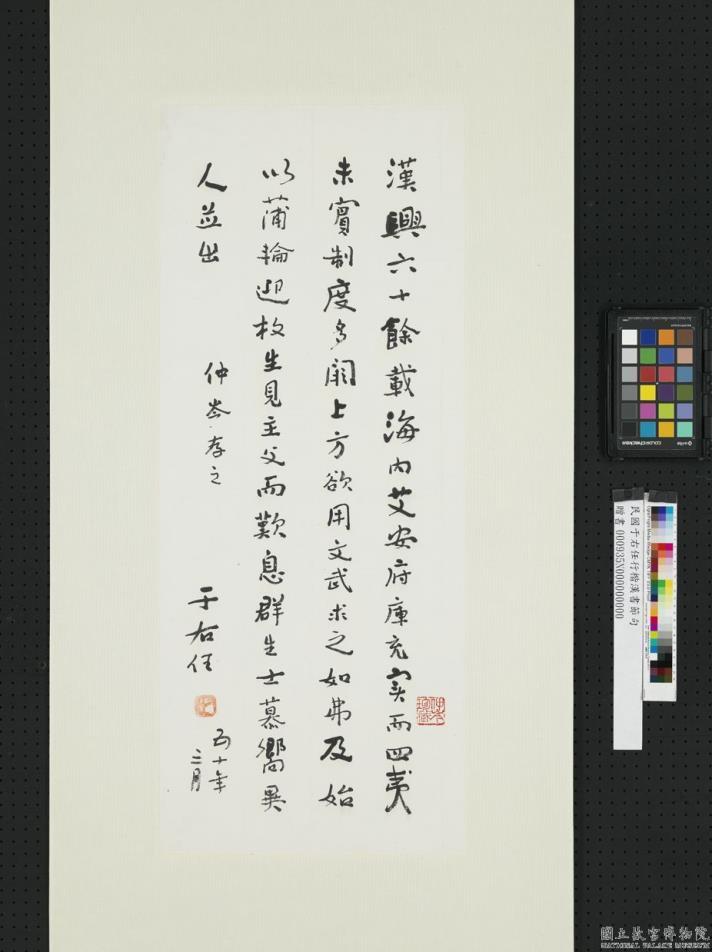 漢興六十餘載海內艾安府庫充实而四夷
未賓制度多闕上方欲用文武求之如弗及始
以蒲輪迎枚生見主父而歎息群生士慕嚮異
人並出
仲岑存之
于右任
五十年
三月
民國于右任行楷漢書節句
贈書 000935X000000000
國立故宮博物院
NATIONAL PALACE MUSEUM